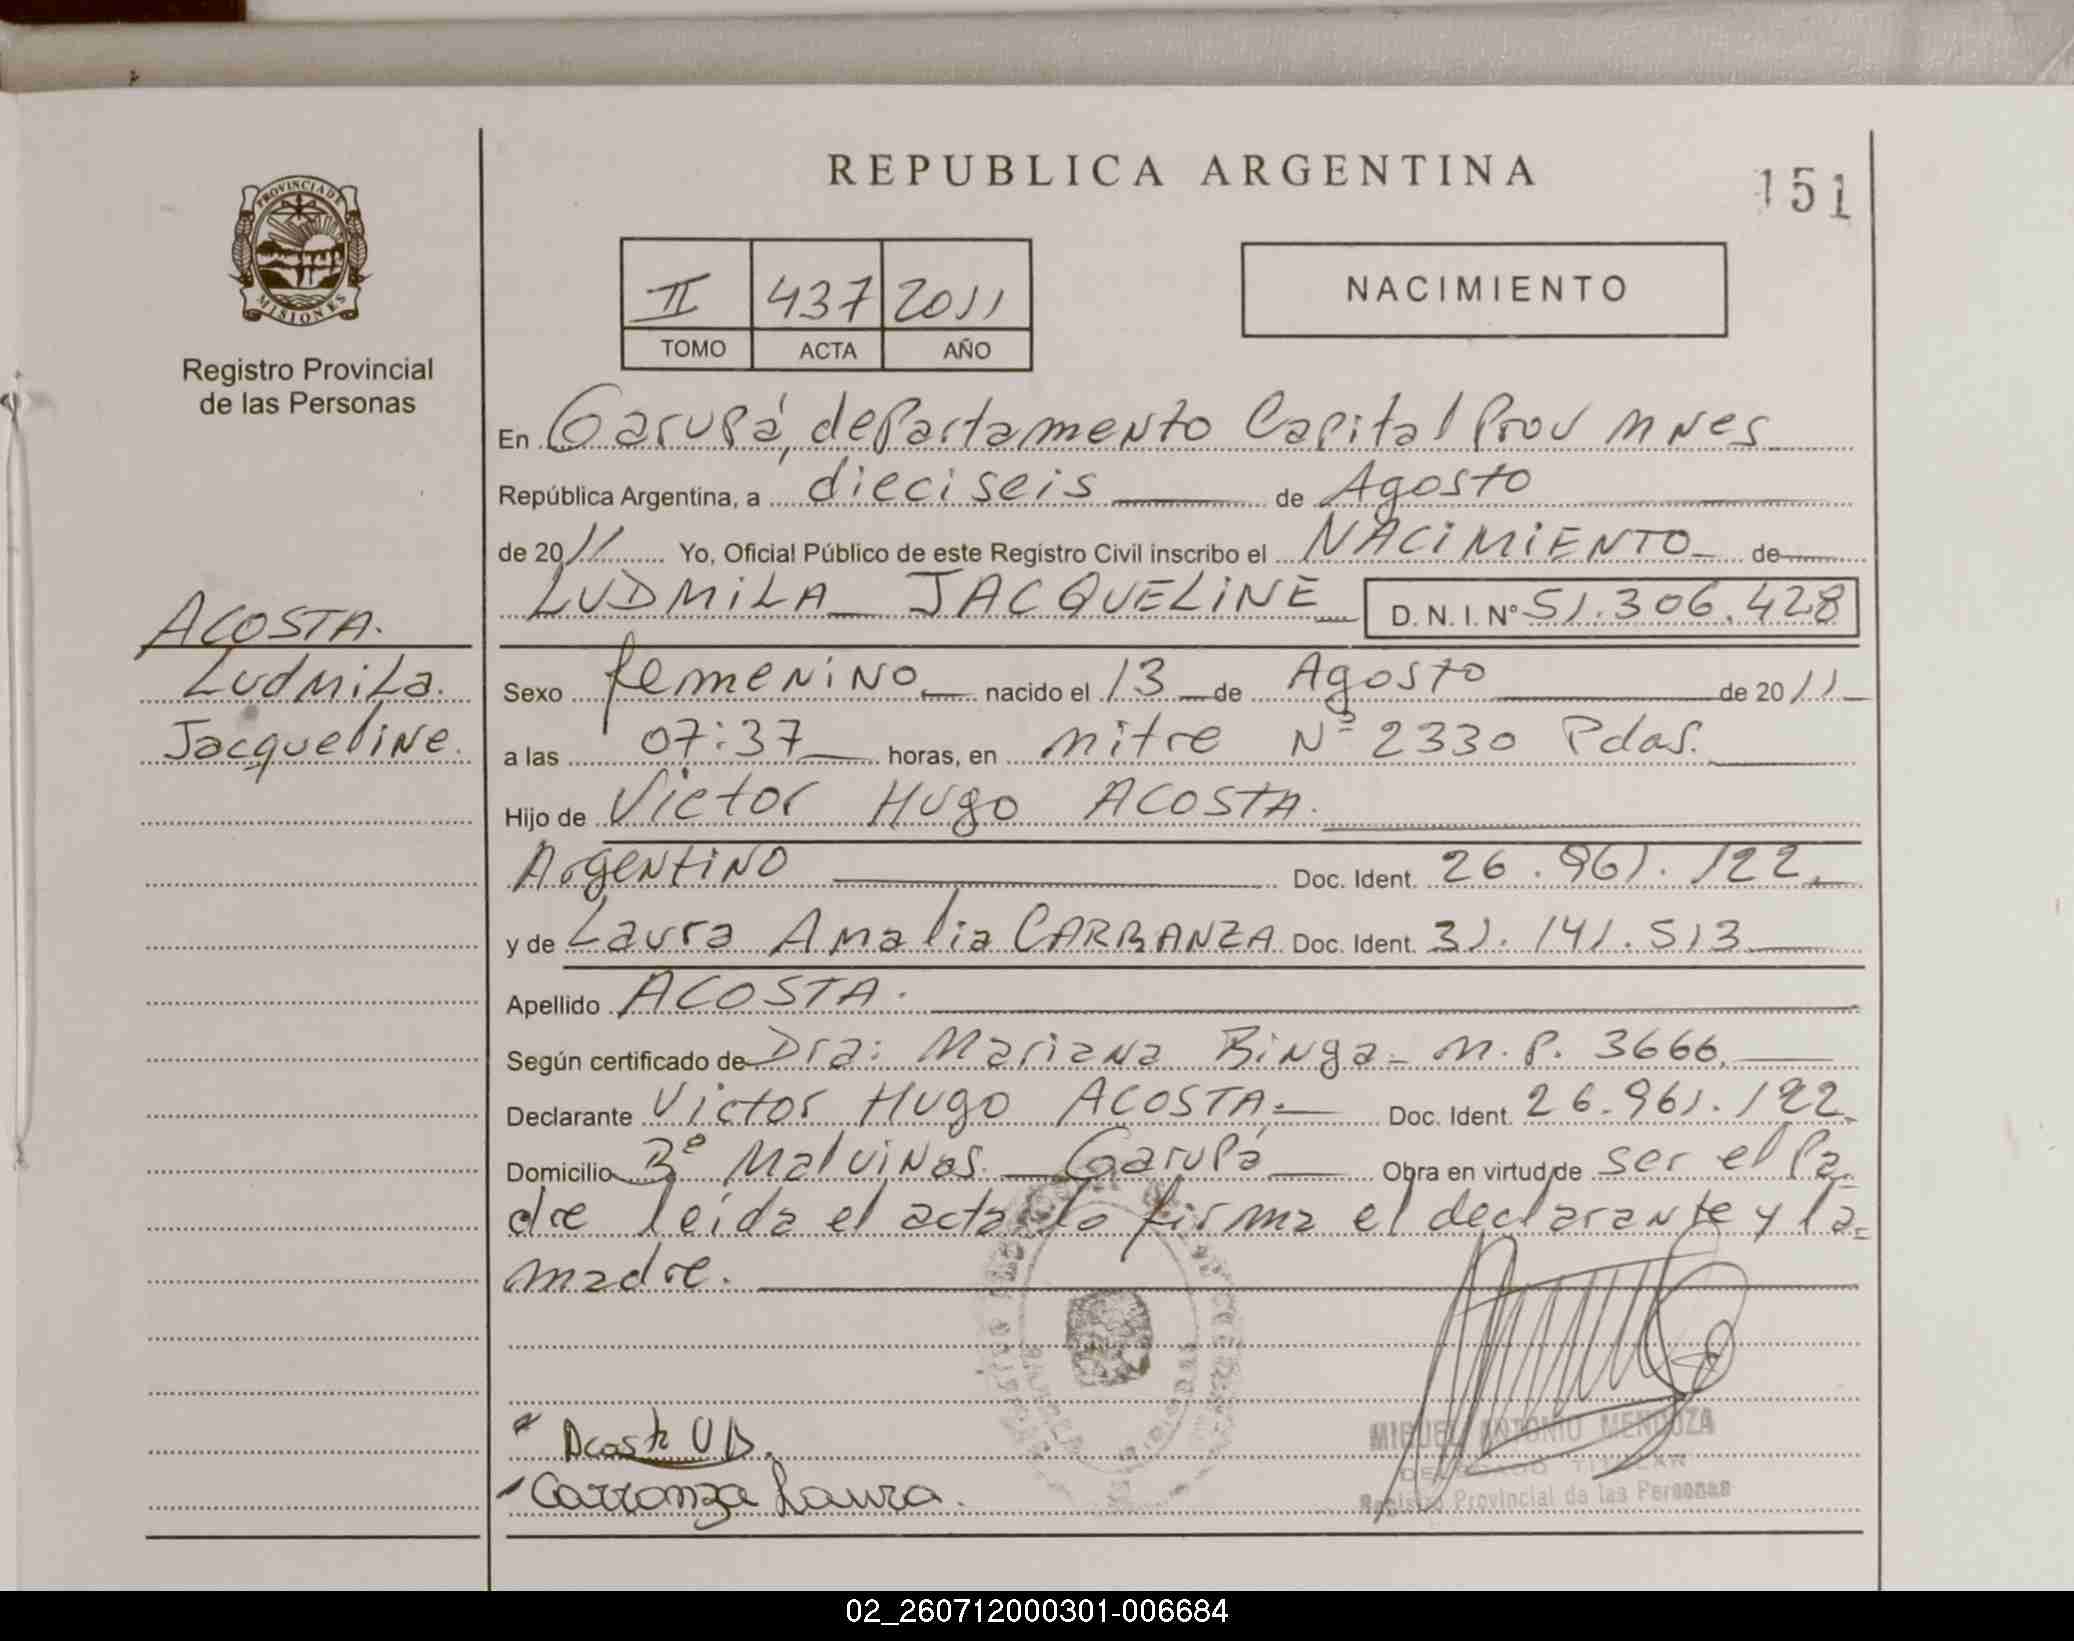 REPUBLICA ARGENTINA
151
PROVINCIA DE MISIONES
Registro Provincial
de las Personas
II 437 2011
TOMO ACTA AÑO
NACIMIENTO
En Garupá, departamento Capital Prov Mnes
República Argentina, a dieciseis de Agosto
de 2011 Yo, Oficial Público de este Registro Civil inscribo el NACIMIENTO de
LUDMILA JACQUELINE D.N.I. Nº 51.306.428
ACOSTA.
Ludmila.
Jacqueline.
Sexo femenino nacido el 13 de Agosto de 2011
a las 07:37 horas, en mitre Nº 2330 Pdas.
Hijo de Victor Hugo ACOSTA.
Argentino Doc. Ident. 26.961.122.
y de Laura Amalia CARRANZA Doc. Ident. 31.141.513
Apellido ACOSTA.
Según certificado de Dra: Mariana Binga - M.P. 3666.
Declarante Victor Hugo ACOSTA.- Doc. Ident. 26.961.122.
Domicilio Bº Malvinas. Garupá Obra en virtud de ser el Pa-
dre leída el acta lo firma el declarante y la-
madre.
Acosta
Carranza Laura.
MIGUEL ANTONIO MENDOZA
DELEGADO TITULAR
Registro Provincial de las Personas
02_260712000301-006684